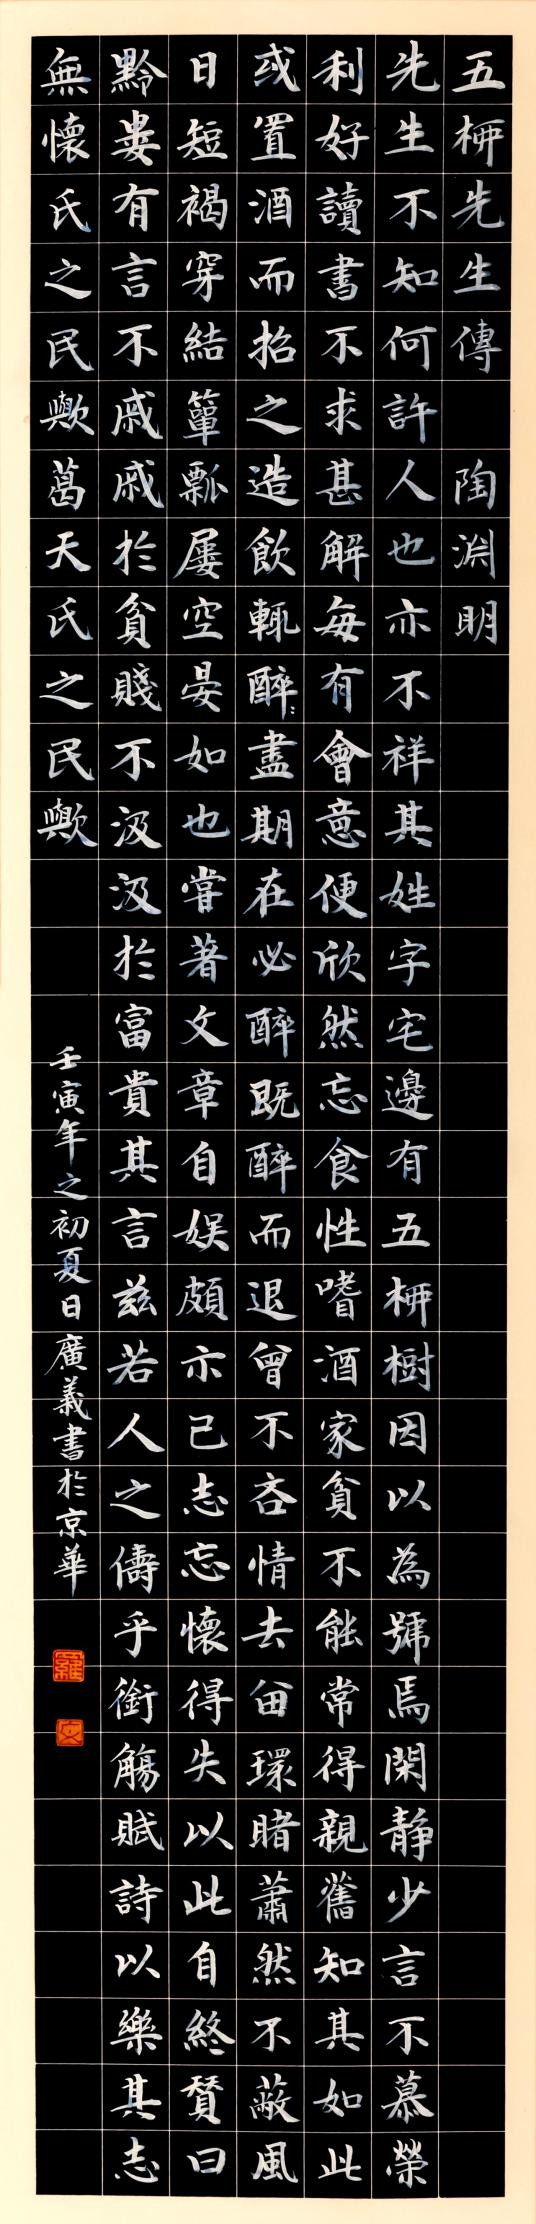 五柳先生傳　陶淵明
先生不知何許人也亦不祥其姓字宅邊有五柳樹因以為號焉閑靜少言不慕榮
利好讀書不求甚解每有會意便欣然忘食性嗜酒家貧不能常得親舊知其如此
或置酒而招之造飲輒醉盡期在必醉既醉而退曾不吝情去留環睹蕭然不蔽風
日短褐穿結簞瓢屢空晏如也嘗著文章自娛頗示己志忘懷得失以此自終贊曰
黔婁有言不戚戚於貧賤不汲汲於富貴其言茲若人之儔乎銜觴賦詩以樂其志
無懷氏之民歟葛天氏之民歟
壬寅年之初夏日廣義書於京華
羅